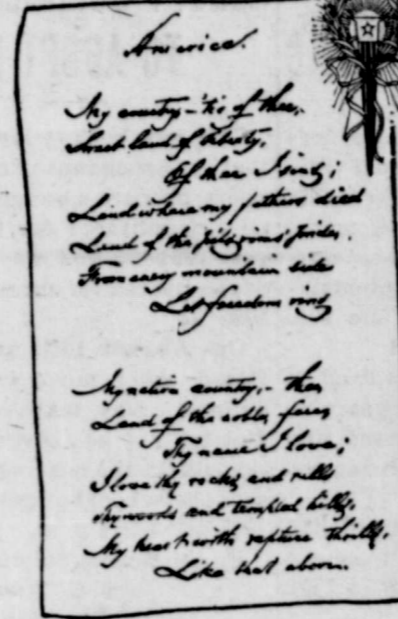 America.
My country - 'tis of thee,
Sweet land of liberty,
Of thee I sing;
Land where my fathers died
Land of the pilgrims' pride,
From every mountain side
Let freedom ring
My native country, - thee,
Land of the noble, free,
Thy name I love;
I love thy rocks and rills
Thy woods and templed hills,
My heart with rapture thrills,
Like that above.